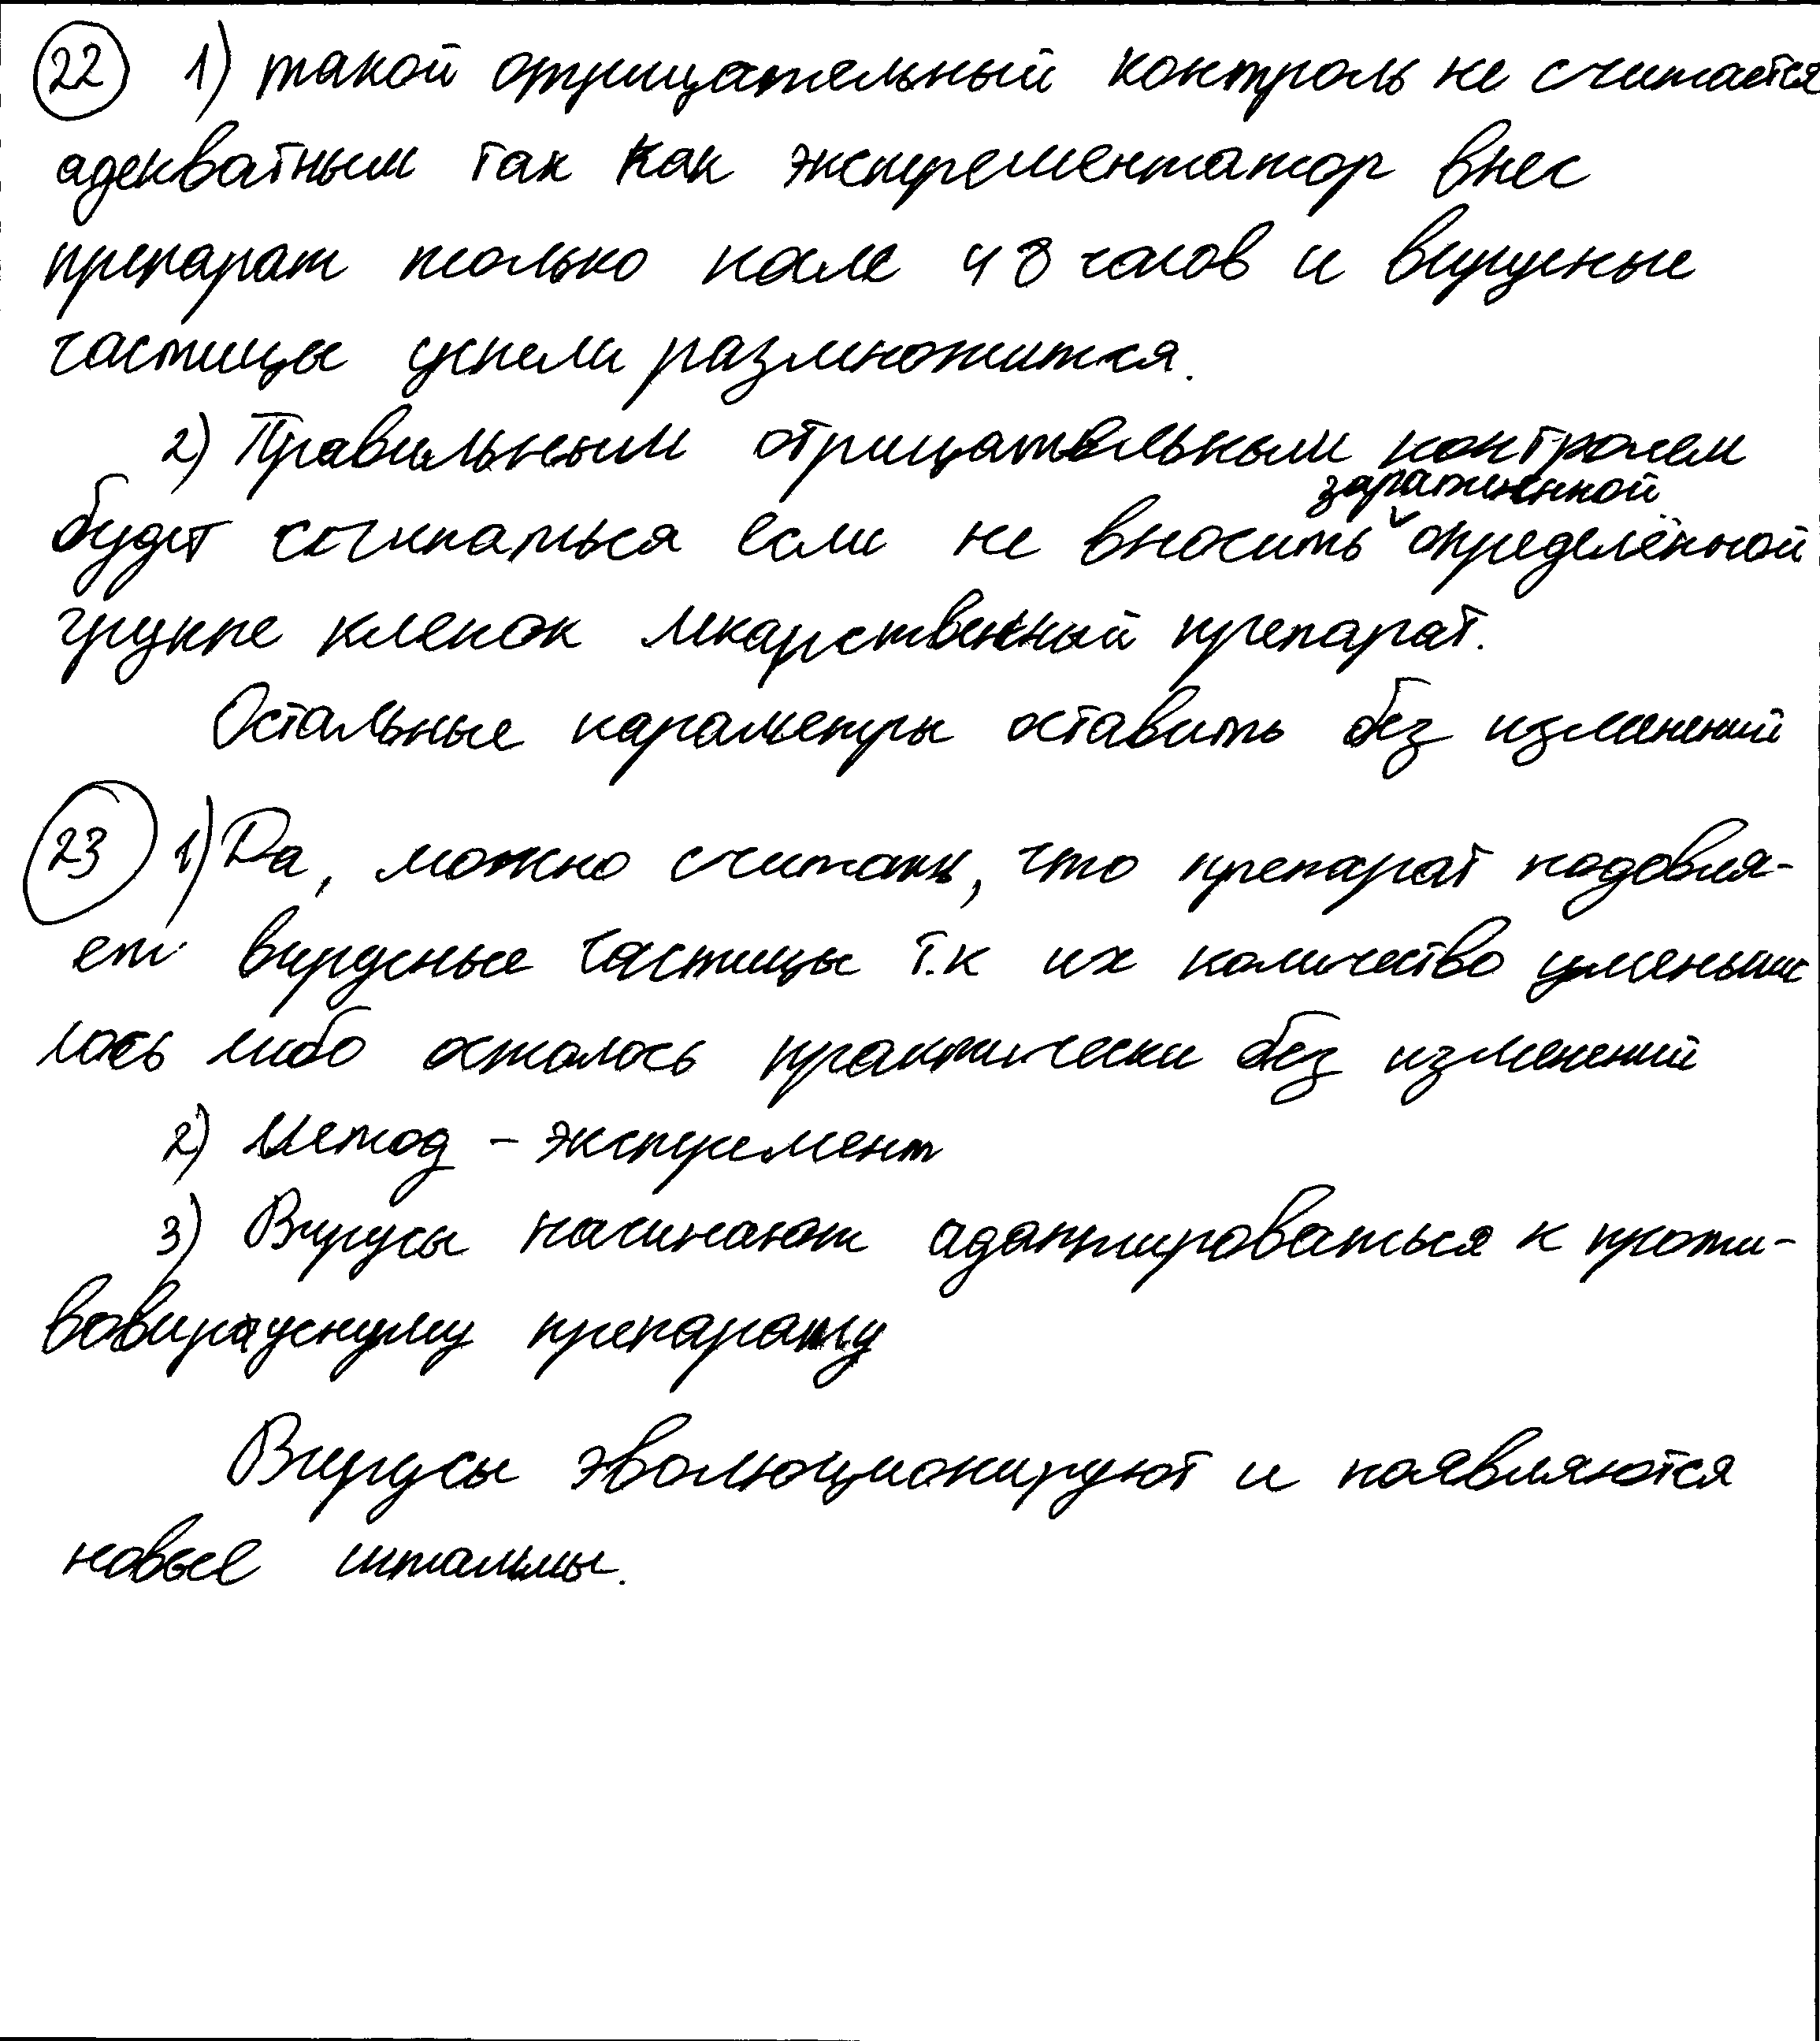 22 1) такой отрицательный контроль не считается
адекватным так как экспрементатор внес
препарат только после 48 часов и вирусные
частицы успели размножится.
2) Правильным отрицательным контролем
заражённой
будет считаться если не вносить ∨ определённой
группе клеток лекарственный препарат.
Остальные параметры оставить без изменений
23 1) Да, можно считать, что препарат подовля-
ет вирусные частицы т.к их количество уменьши
лось либо осталось практически без изменений
2) Метод - эксперемент
3) Вирусы начинают адаптироваться к проти-
вовирусному препарату
Вирусы эволюционируют и появляются
новые штаммы.